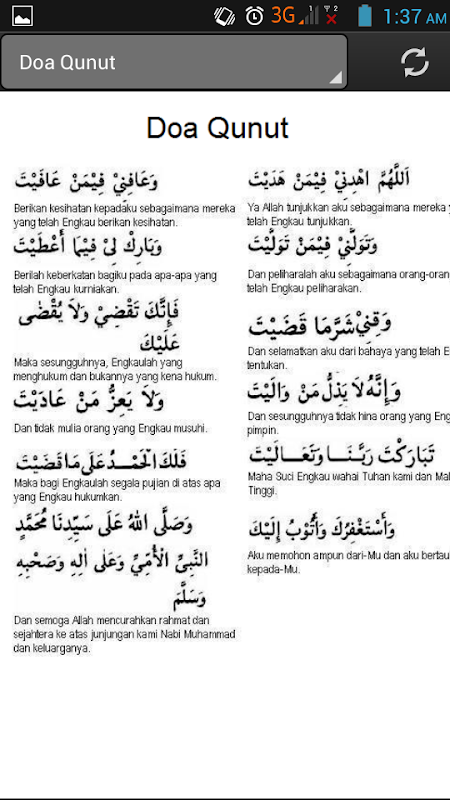 3G
1:37 AM
Doa Qunut
Doa Qunut
اَللَّهُمَّ اهْدِنِيْ فِيْمَنْ هَدَيْتَ
Ya Allah tunjukkan aku sebagaimana mereka y
telah Engkau tunjukkan.
وَعَافِنِيْ فِيْمَنْ عَافَيْتَ
Berikan kesihatan kepadaku sebagaimana mereka
yang telah Engkau berikan kesihatan.
وَتَوَلَّنِيْ فِيْمَنْ تَوَلَّيْتَ
Dan peliharalah aku sebagaimana orang-oran
telah Engkau peliharakan.
وَبَارِكْ لِيْ فِيْمَا أَعْطَيْتَ
Berilah keberkatan bagiku pada apa-apa yang
telah Engkau kurniakan.
وَقِنِيْ شَرَّمَا قَضَيْتَ
Dan selamatkan aku dari bahaya yang telah E
tentukan.
فَإِنَّكَ تَقْضِيْ وَلاَ يُقْضٰى
عَلَيْكَ
Maka sesungguhnya, Engkaulah yang
menghukum dan bukannya yang kena hukum.
وَإِنَّهُ لاَ يَذِلُّ مَنْ وَالَيْتَ
Dan sesungguhnya tidak hina orang yang Eng
pimpin.
وَلاَ يَعِزُّ مَنْ عَادَيْتَ
Dan tidak mulia orang yang Engkau musuhi.
تَبَارَكْتَ رَبَّنَا وَتَعَالَيْتَ
Maha Suci Engkau wahai Tuhan kami dan Mal
Tinggi.
فَلَكَ الْحَمْدُ عَلَى مَا قَضَيْتَ
Maka bagi Engkaulah segala pujian di atas apa
yang Engkau hukumkan.
وَأَسْتَغْفِرُكَ وَأَتُوْبُ إِلَيْكَ
Aku memohon ampun dari-Mu dan aku bertau
kepada-Mu.
وَصَلَّى اللهُ عَلَى سَيِّدِنَا مُحَمَّدٍ
النَّبِيِّ الْأُمِّيِّ وَعَلَى اٰلِهِ وَصَحْبِهِ
وَسَلَّمَ
Dan semoga Allah mencurahkan rahmat dan
sejahtera ke atas junjungan kami Nabi Muhammad
dan keluarganya.